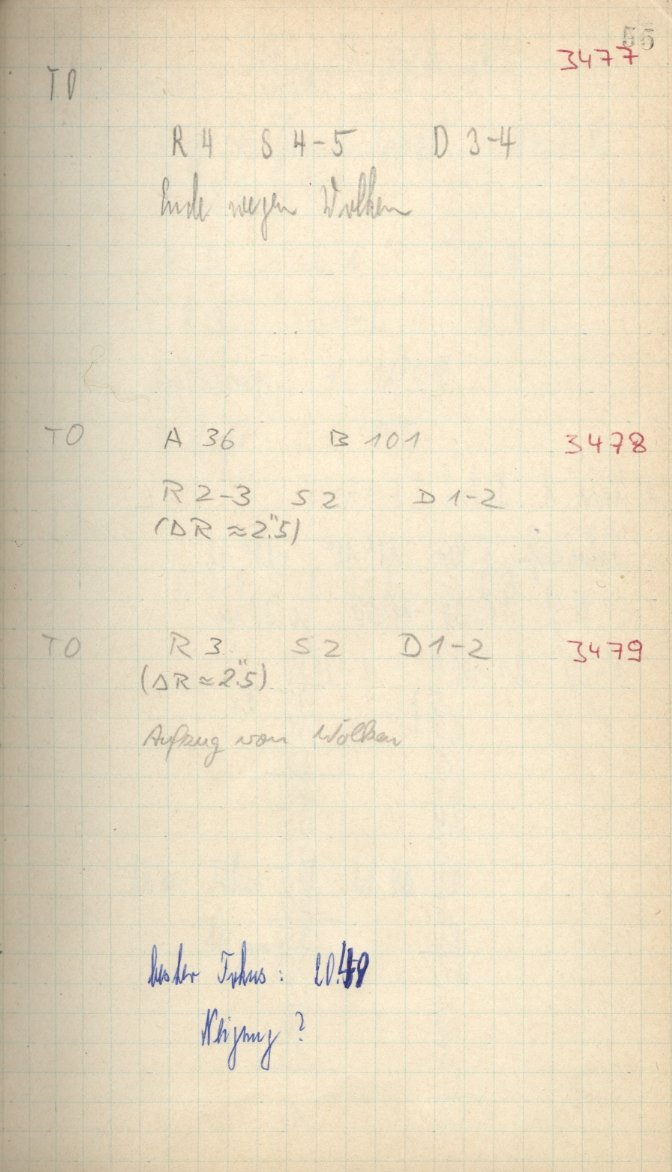 55
3477
TO
R 4 S 4-5 D 3-4
Ende wegen Wolken
TO A 36 B 101 3478
R 2-3 S 2 D 1-2
(ΔR ≈ 2".5)
TO R 3 S 2 D 1-2 3479
(ΔR ≈ 2".5)
Aufzug von Wolken
bester Fokus:
Neigung ?